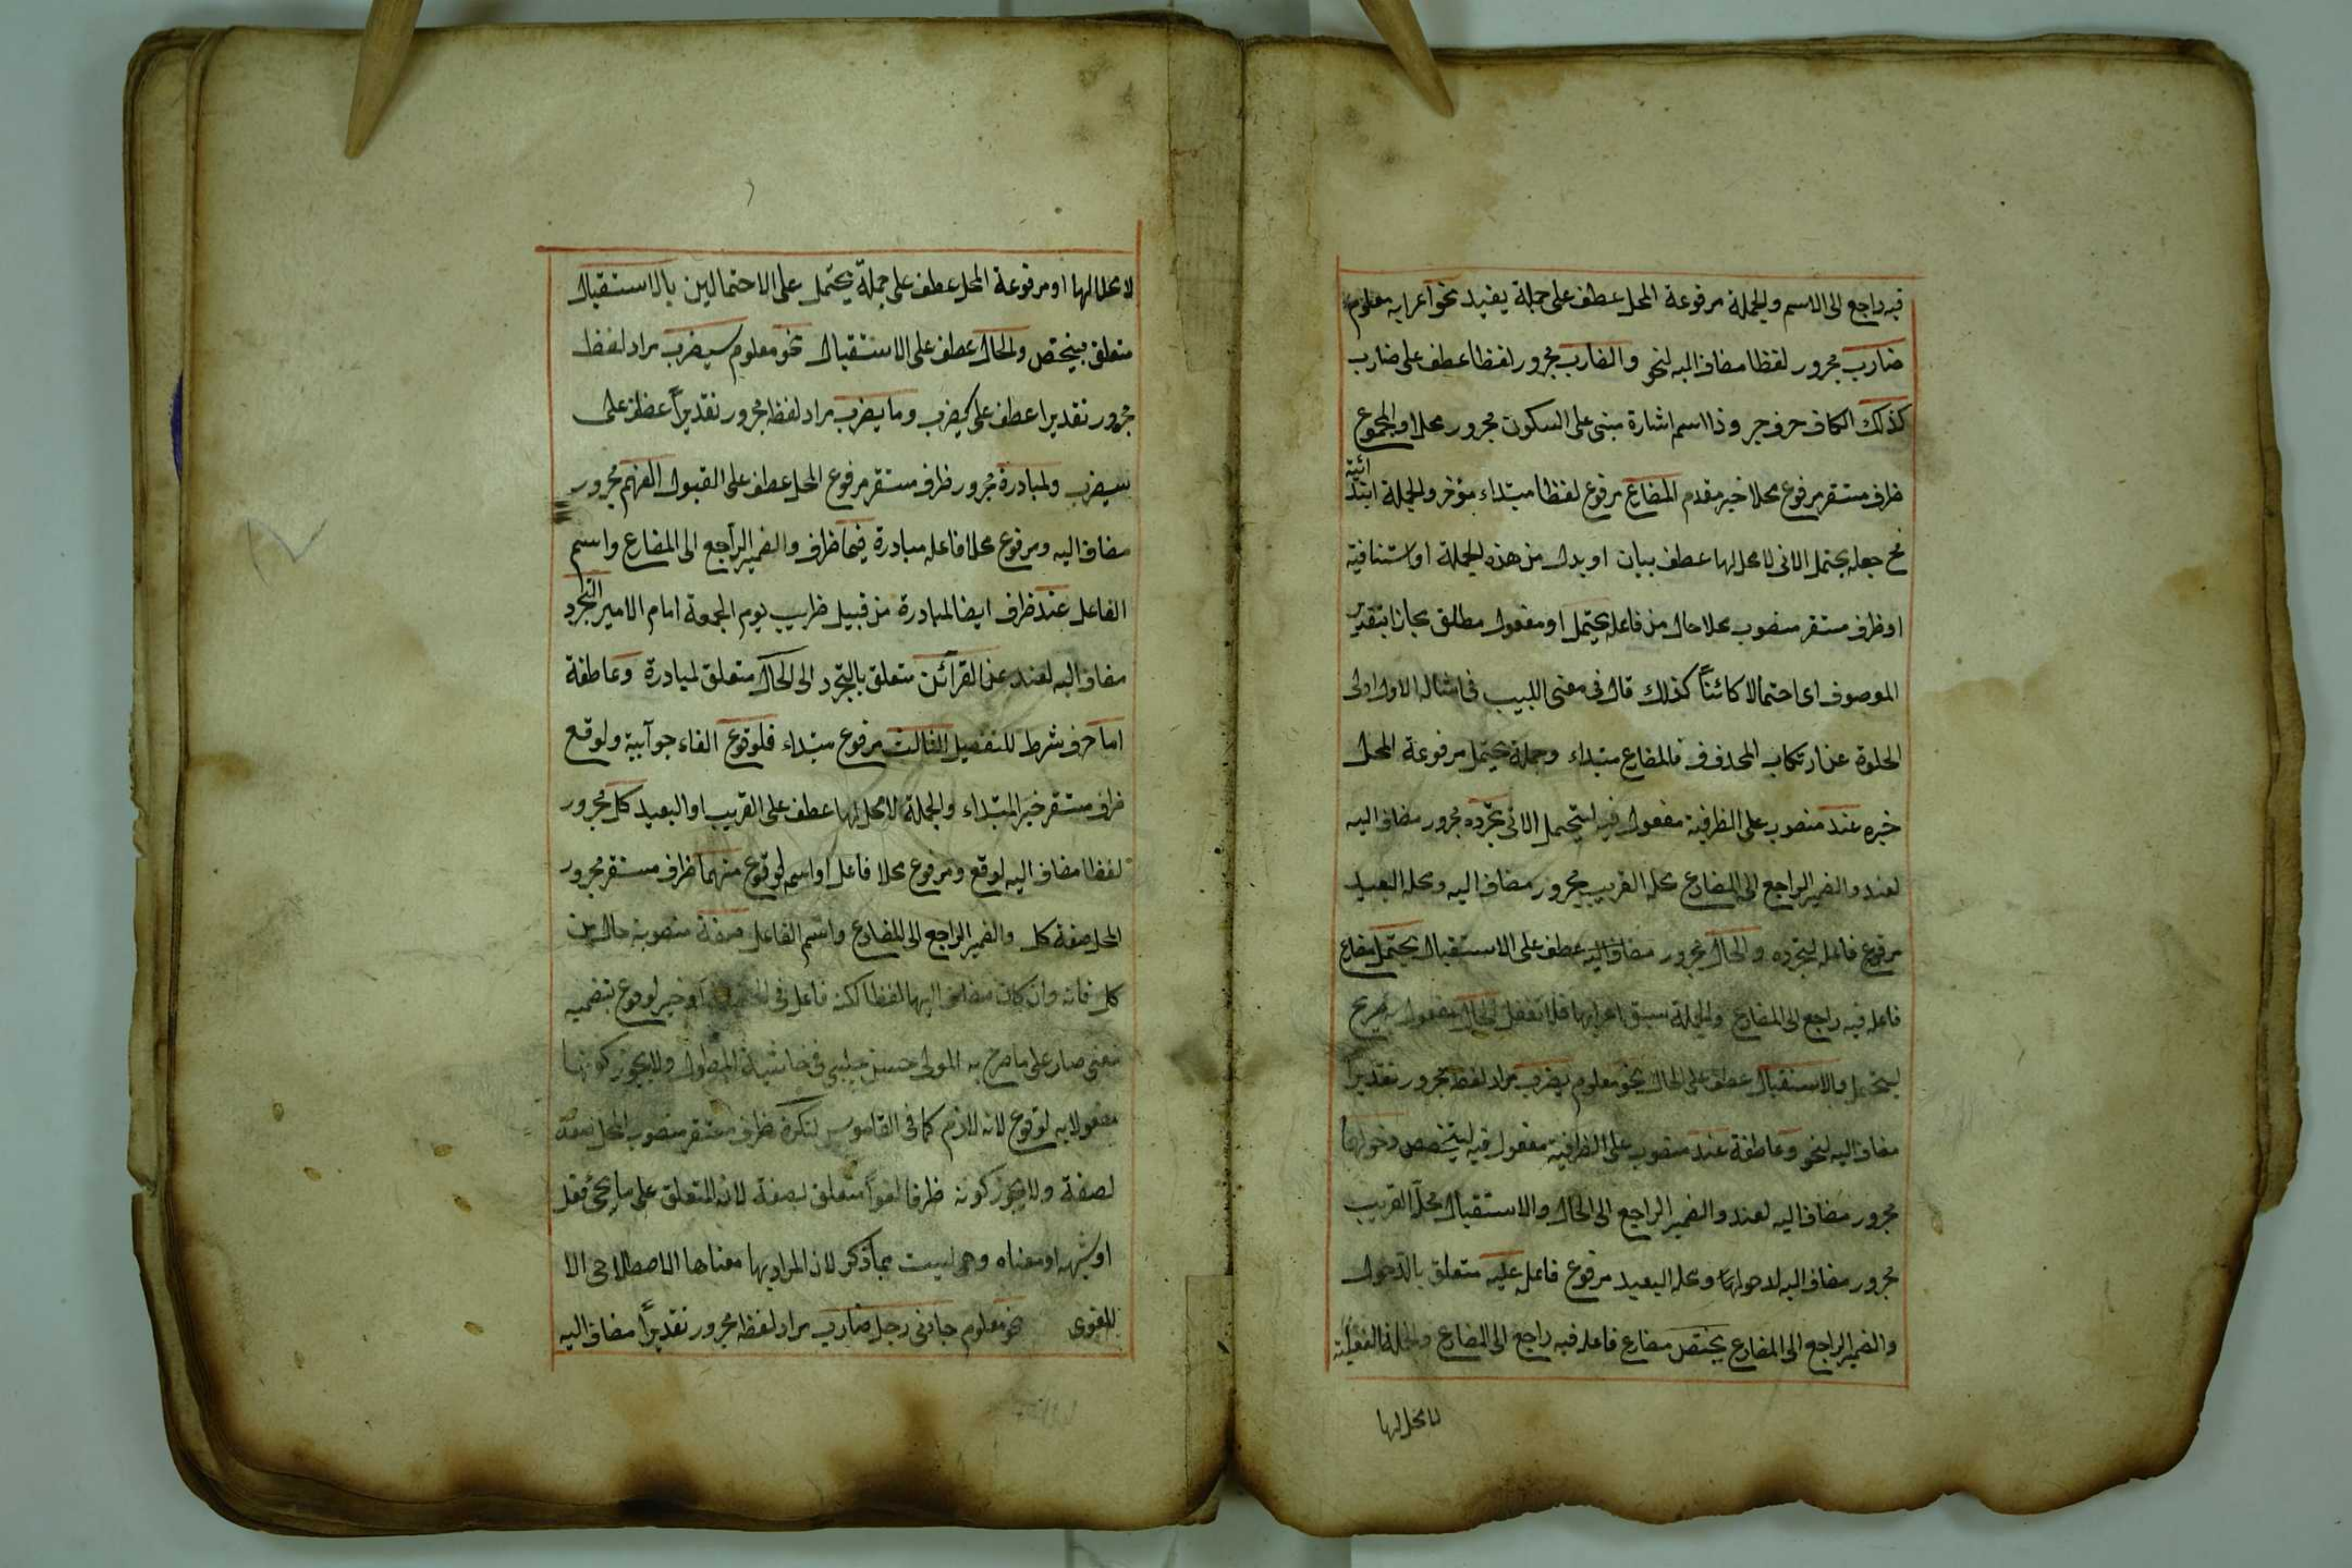 فيه راجع الى الاسم والجملة مرفوعة المحل عطف على جملة يفيد نحو اعرابه معلوم
ضارب مجرور لفظا مضاف اليه لنحو والضارب مجرور لفظا عطف على ضارب
كذلك الكاف حرف جر وذا اسم اشارة مبنى على السكون مجرور محلا والمجموع
ظرف مستقر مرفوع محلا خبر مقدم المضارع مرفوع لفظا مبتداء مؤخر والجملة ابتدائية
جعله يحتمل الاتى لا محل لها عطف بيان او بدل من هذه الجملة او استئنافية
او ظرف مستقر منصوب محلا حال من فاعل يحتمل او مفعول مطلق مجازا بتقدير
الموصوف اى احتمالا كائناً كذلك قال فى مغنى اللبيب فى امثاله الاول اولى
عن ارتكاب الحذف فالمضارع مبتداء وجملة يحتمل مرفوعة المحل
خبره عند منصوب على الظرفية مفعول فيه ليحتمل الاتى تجرده مجرور مضاف اليه
لعند والضمير الراجع الى المضارع محله القريب مجرور مضاف اليه ومحله البعيد
مرفوع فاعل لتجرده والحال مجرور مضاف اليه عطف على الاستقبال يحتمل مضارع
فاعله فيه راجع الى المضارع والجملة سبق اعرابها فلا تغفل الحال مفعول به صريح
ليحتمل والاستقبال عطف على الحال نحو معلوم يضرب مراد لفظه مجرور تقديراً
مضاف اليه لنحو وعاطفة عند منصوب على الظرفية مفعول فيه ليتخصص دخولهما
مجرور مضاف اليه لعند والضمير الراجع الى الحال والاستقبال محله القريب
مجرور مضاف اليه لدخولهما ومحله البعيد مرفوع فاعل عليه متعلق بالدخول
والضمير الراجع الى المضارع يختص مضارع فاعله فيه راجع الى المضارع والجملة الفعلية
لا محل لها
لا محل لها او مرفوعة المحل عطف على جملة يحتمل على الاحتمالين بالاستقبال
متعلق بيختص والحال عطف على الاستقبال نحو معلوم سيضرب مراد لفظه
مجرور تقديرا عطف على كيضرب وما يضرب مراد لفظه مجرور تقديراً عطف على
سيضرب ولمبادرة مجرور ظرف مستقر مرفوع المحل عطف على القبول الفهم مجرور
مضاف اليه ومرفوع محلا فاعله مبادرة فيهما ظرف والضمير الراجع الى المضارع واسم
الفاعل عند ظرف ايضا لمبادرة من قبيل ضارب يوم الجمعة امام الامير التجرد
مضاف اليه لعند عن القرائن متعلق بالتجرد الى الحال متعلق لمبادرة وعاطفة
اما حرف شرط للتفصيل الثالث مرفوع مبتداء فلوقوع الفاء جوابية ولوقع
ظرف مستقر خبر المبتداء والجملة لا محل لها عطف على القريب او البعيد كل مجرور
لفظا مضاف اليه لوقع ومرفوع محلا فاعل او اسم لوقوع منهما ظرف مستقر مجرور
المحل صفة كل والضمير الراجع الى المضارع واسم الفاعل صفة منصوبة حال من
كل فانه وان كان مضاف اليها لفظا لكنه فاعل فى او خبر لوقوع بتضمينه
معنى صار على ما صرح به المولى حسن چلبى فى حاشية المطول ولا يجوز كونها
مفعولا به لوقوع لانه لازم كما فى القاموس لنكرة ظرف مستقر منصوب المحل صفة
لصفة ولا يجوز كونه ظرفا لغوا متعلق لصفة لان المتعلق على ما يجئ فعل
او شبهه او معناه وهى ليست مما ذكر لان المراد بها معناها الاصطلاحى الا
للغوى نحو معلوم جاءنى رجل ضارب مراد لفظه مجرور تقديراً مضاف اليه